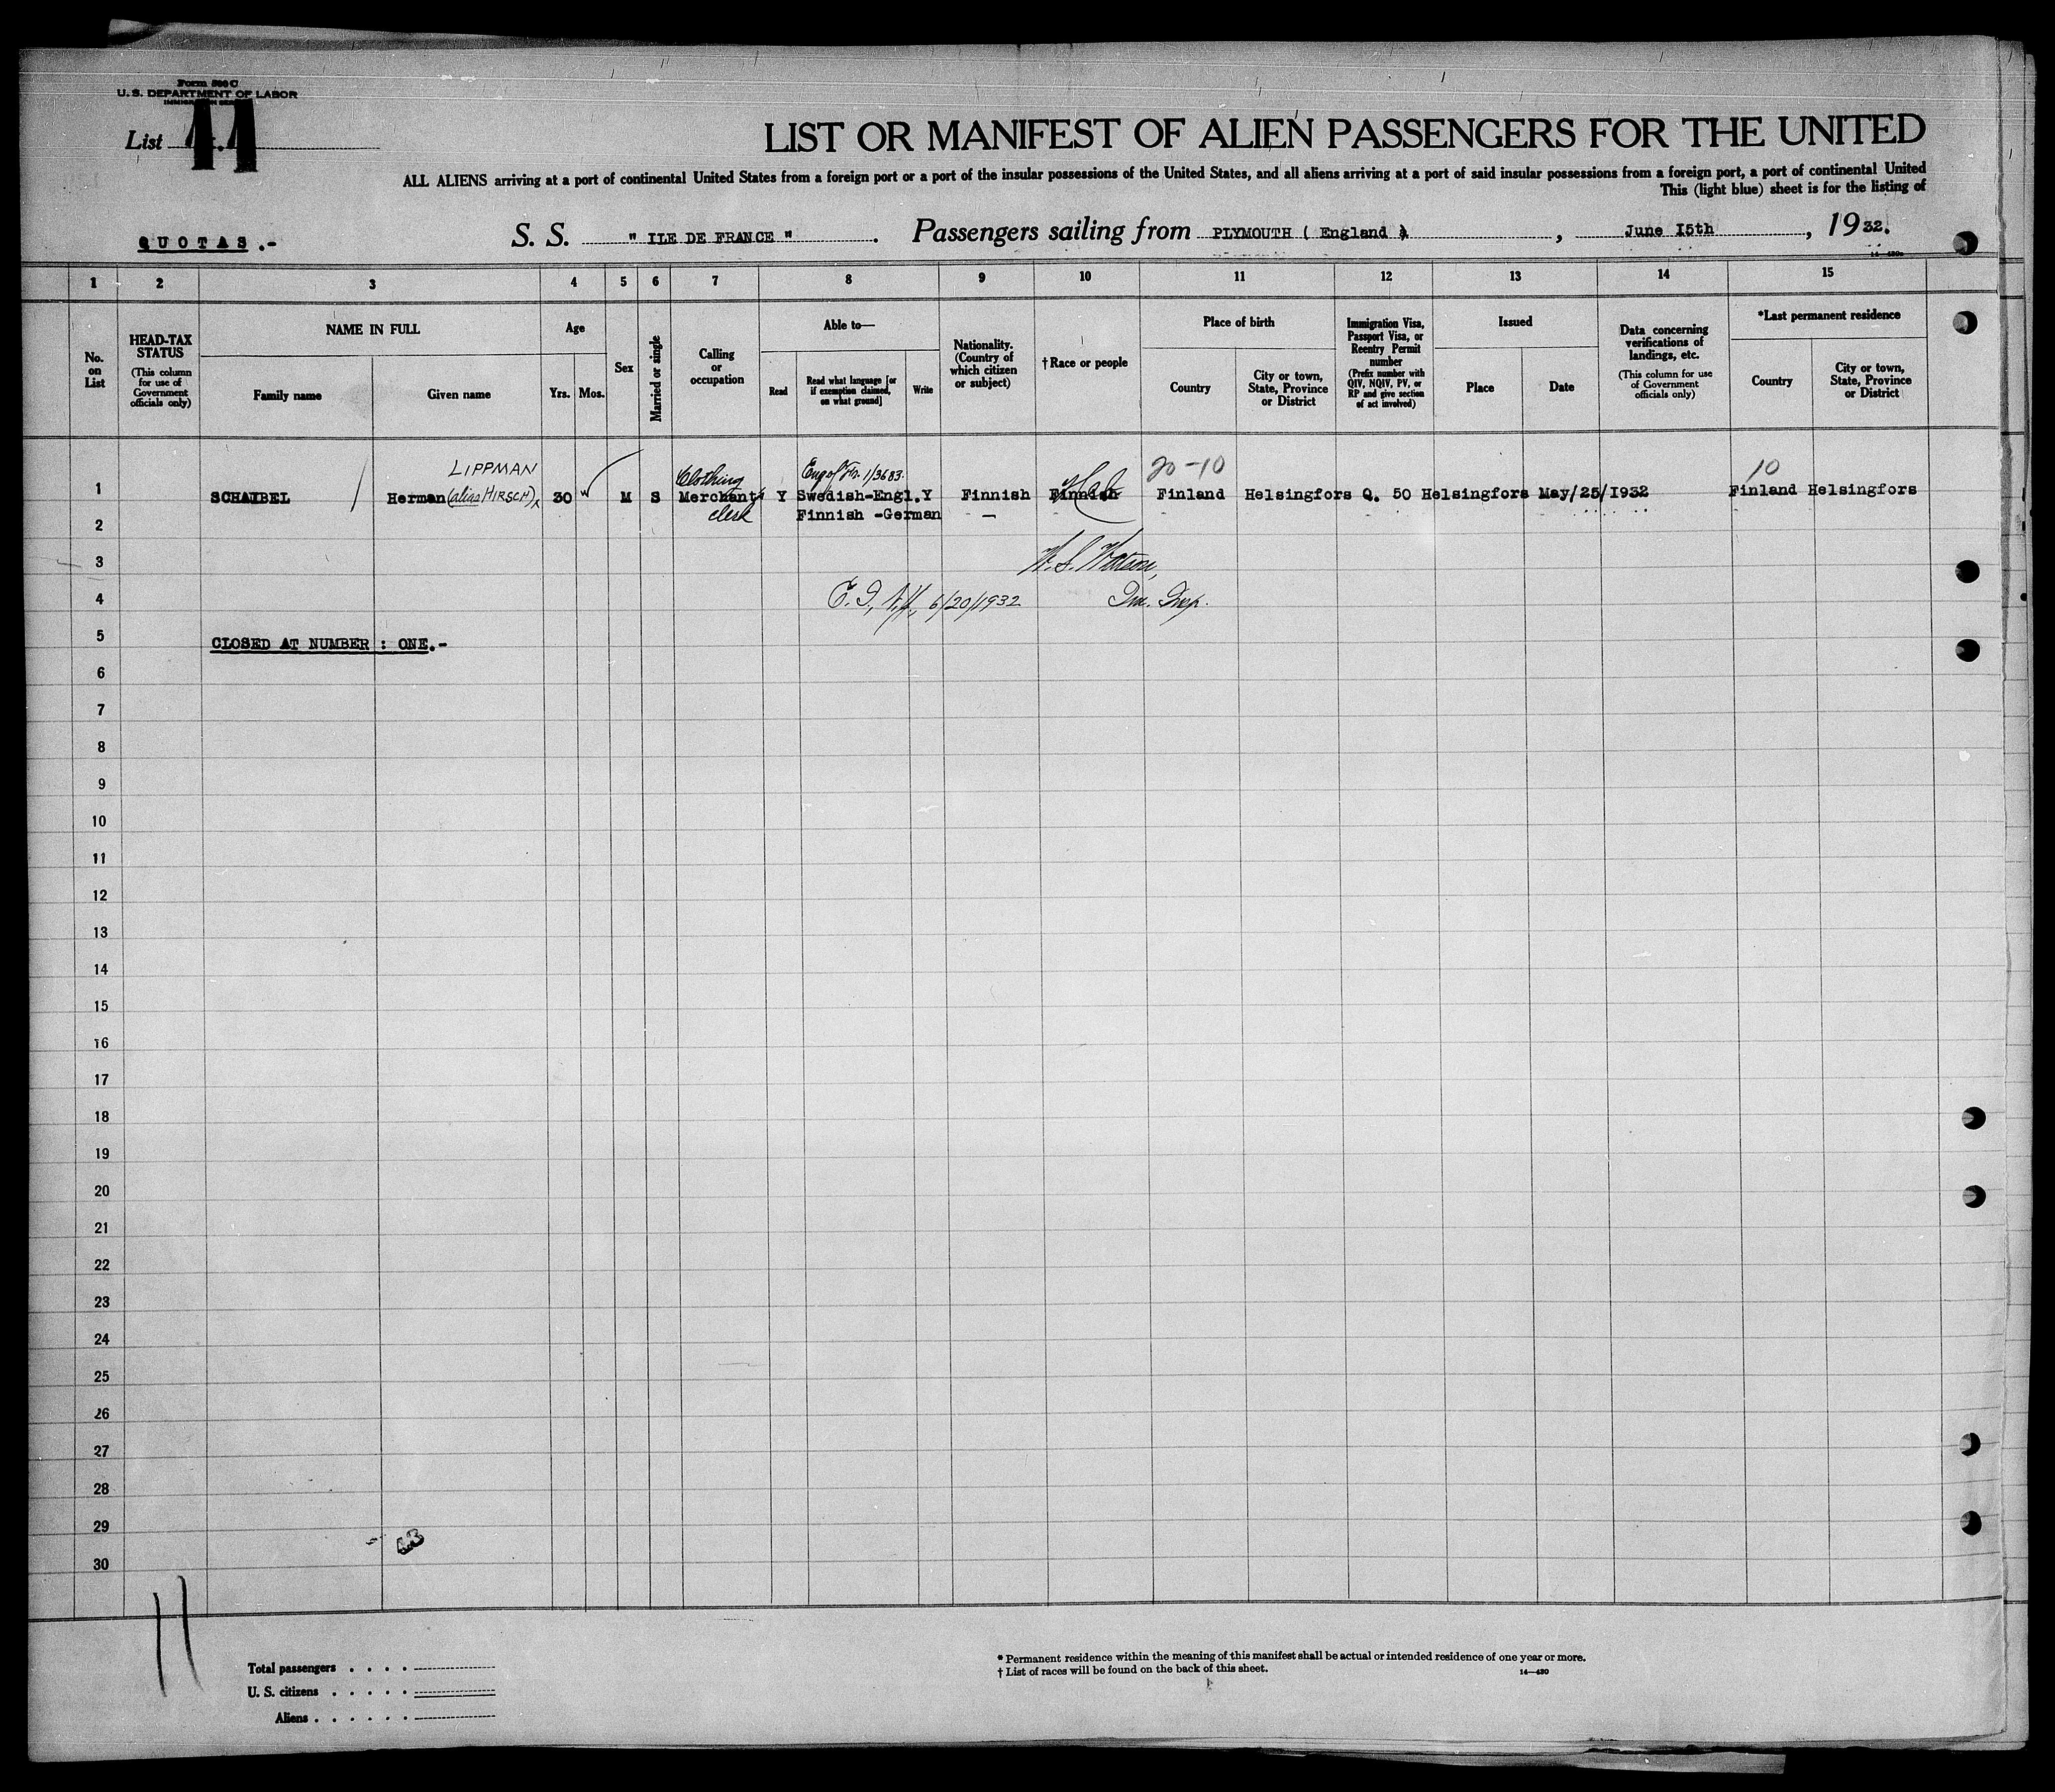 Form 500 C
U. S. DEPARTMENT OF LABOR
List 11
LIST OR MANIFEST OF ALIEN PASSENGERS FOR THE UNITED
ALL ALIENS arriving at a port of continental United States from a foreign port or a port of the insular possessions of the United States, and all aliens arriving at a port of said insular possessions from a foreign port, a port of continental United
This (light blue) sheet is for the listing of
QUOTAS.-
S. S. " ILE DE FRANCE ". Passengers sailing from PLYMOUTH ( England ), June I5th, 1932.
1 2 3 4 5 6 7 8 9 10 11 12 13 14 15
No. on List
HEAD-TAX STATUS (This column for use of Government officials only)
NAME IN FULL
Family name
Given name
Age
Yrs. Mos.
Sex
Married or single
Calling or occupation
Able to—
Read
Read what language [or if exemption claimed, on what ground]
Write
Nationality. (Country of which citizen or subject)
† Race or people
Place of birth
Country
City or town, State, Province or District
Immigration Visa, Passport Visa, or Reentry Permit number (Prefix number with QIV, NQIV, PV, or RP and give section of act involved)
Issued
Place
Date
Data concerning verifications of landings, etc. (This column for use of Government officials only)
*Last permanent residence
Country
City or town, State, Province or District
LIPPMAN Clothing 20-10 10
1 SCHAIBEL Herman (alias HIRSCH) 30 M S Merchant Y Swedish-Engl. Y Finnish Finnish Finland Helsingfors Q. 50 Helsingfors May/25/I932 Finland Helsingfors
clerk Finnish -German -
2
3 W. S. Watson,
4 E. I., N.Y., 6/20/1932 Imm. Insp.
5 CLOSED AT NUMBER : ONE.-
6
7
8
9
10
11
12
13
14
15
16
17
18
19
20
21
22
23
24
25
26
27
28
29
30
11
Total passengers
U. S. citizens
Aliens
* Permanent residence within the meaning of this manifest shall be actual or intended residence of one year or more.
† List of races will be found on the back of this sheet. 14—430